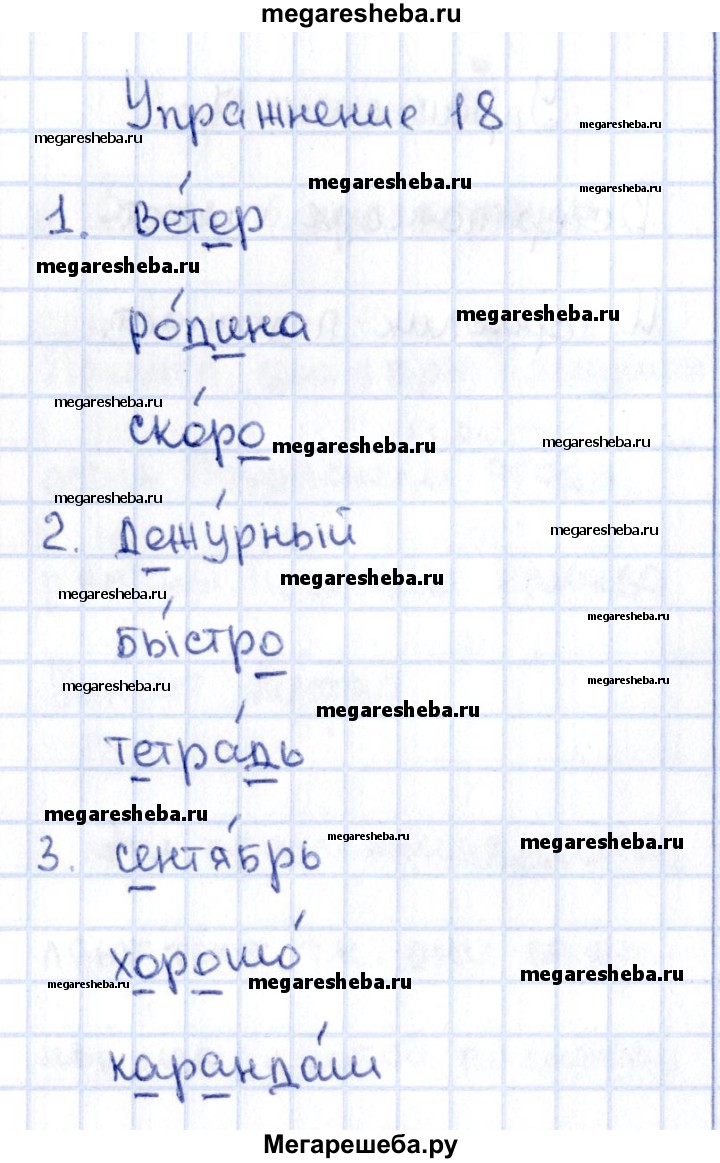 megaresheba.ru
Упражнение 18
megaresheba.ru
megaresheba.ru
megaresheba.ru
1. ве́тер
megaresheba.ru
ро́дина
megaresheba.ru
megaresheba.ru
ско́ро
megaresheba.ru
megaresheba.ru
megaresheba.ru
2. деж́урный
megaresheba.ru
megaresheba.ru
megaresheba.ru
бы́стро
megaresheba.ru
megaresheba.ru
megaresheba.ru
megaresheba.ru
тетра́дь
megaresheba.ru
megaresheba.ru
megaresheba.ru
3. сентя́брь
хорошо́
megaresheba.ru
megaresheba.ru
megaresheba.ru
каранда́ш
Мегарешеба.ру